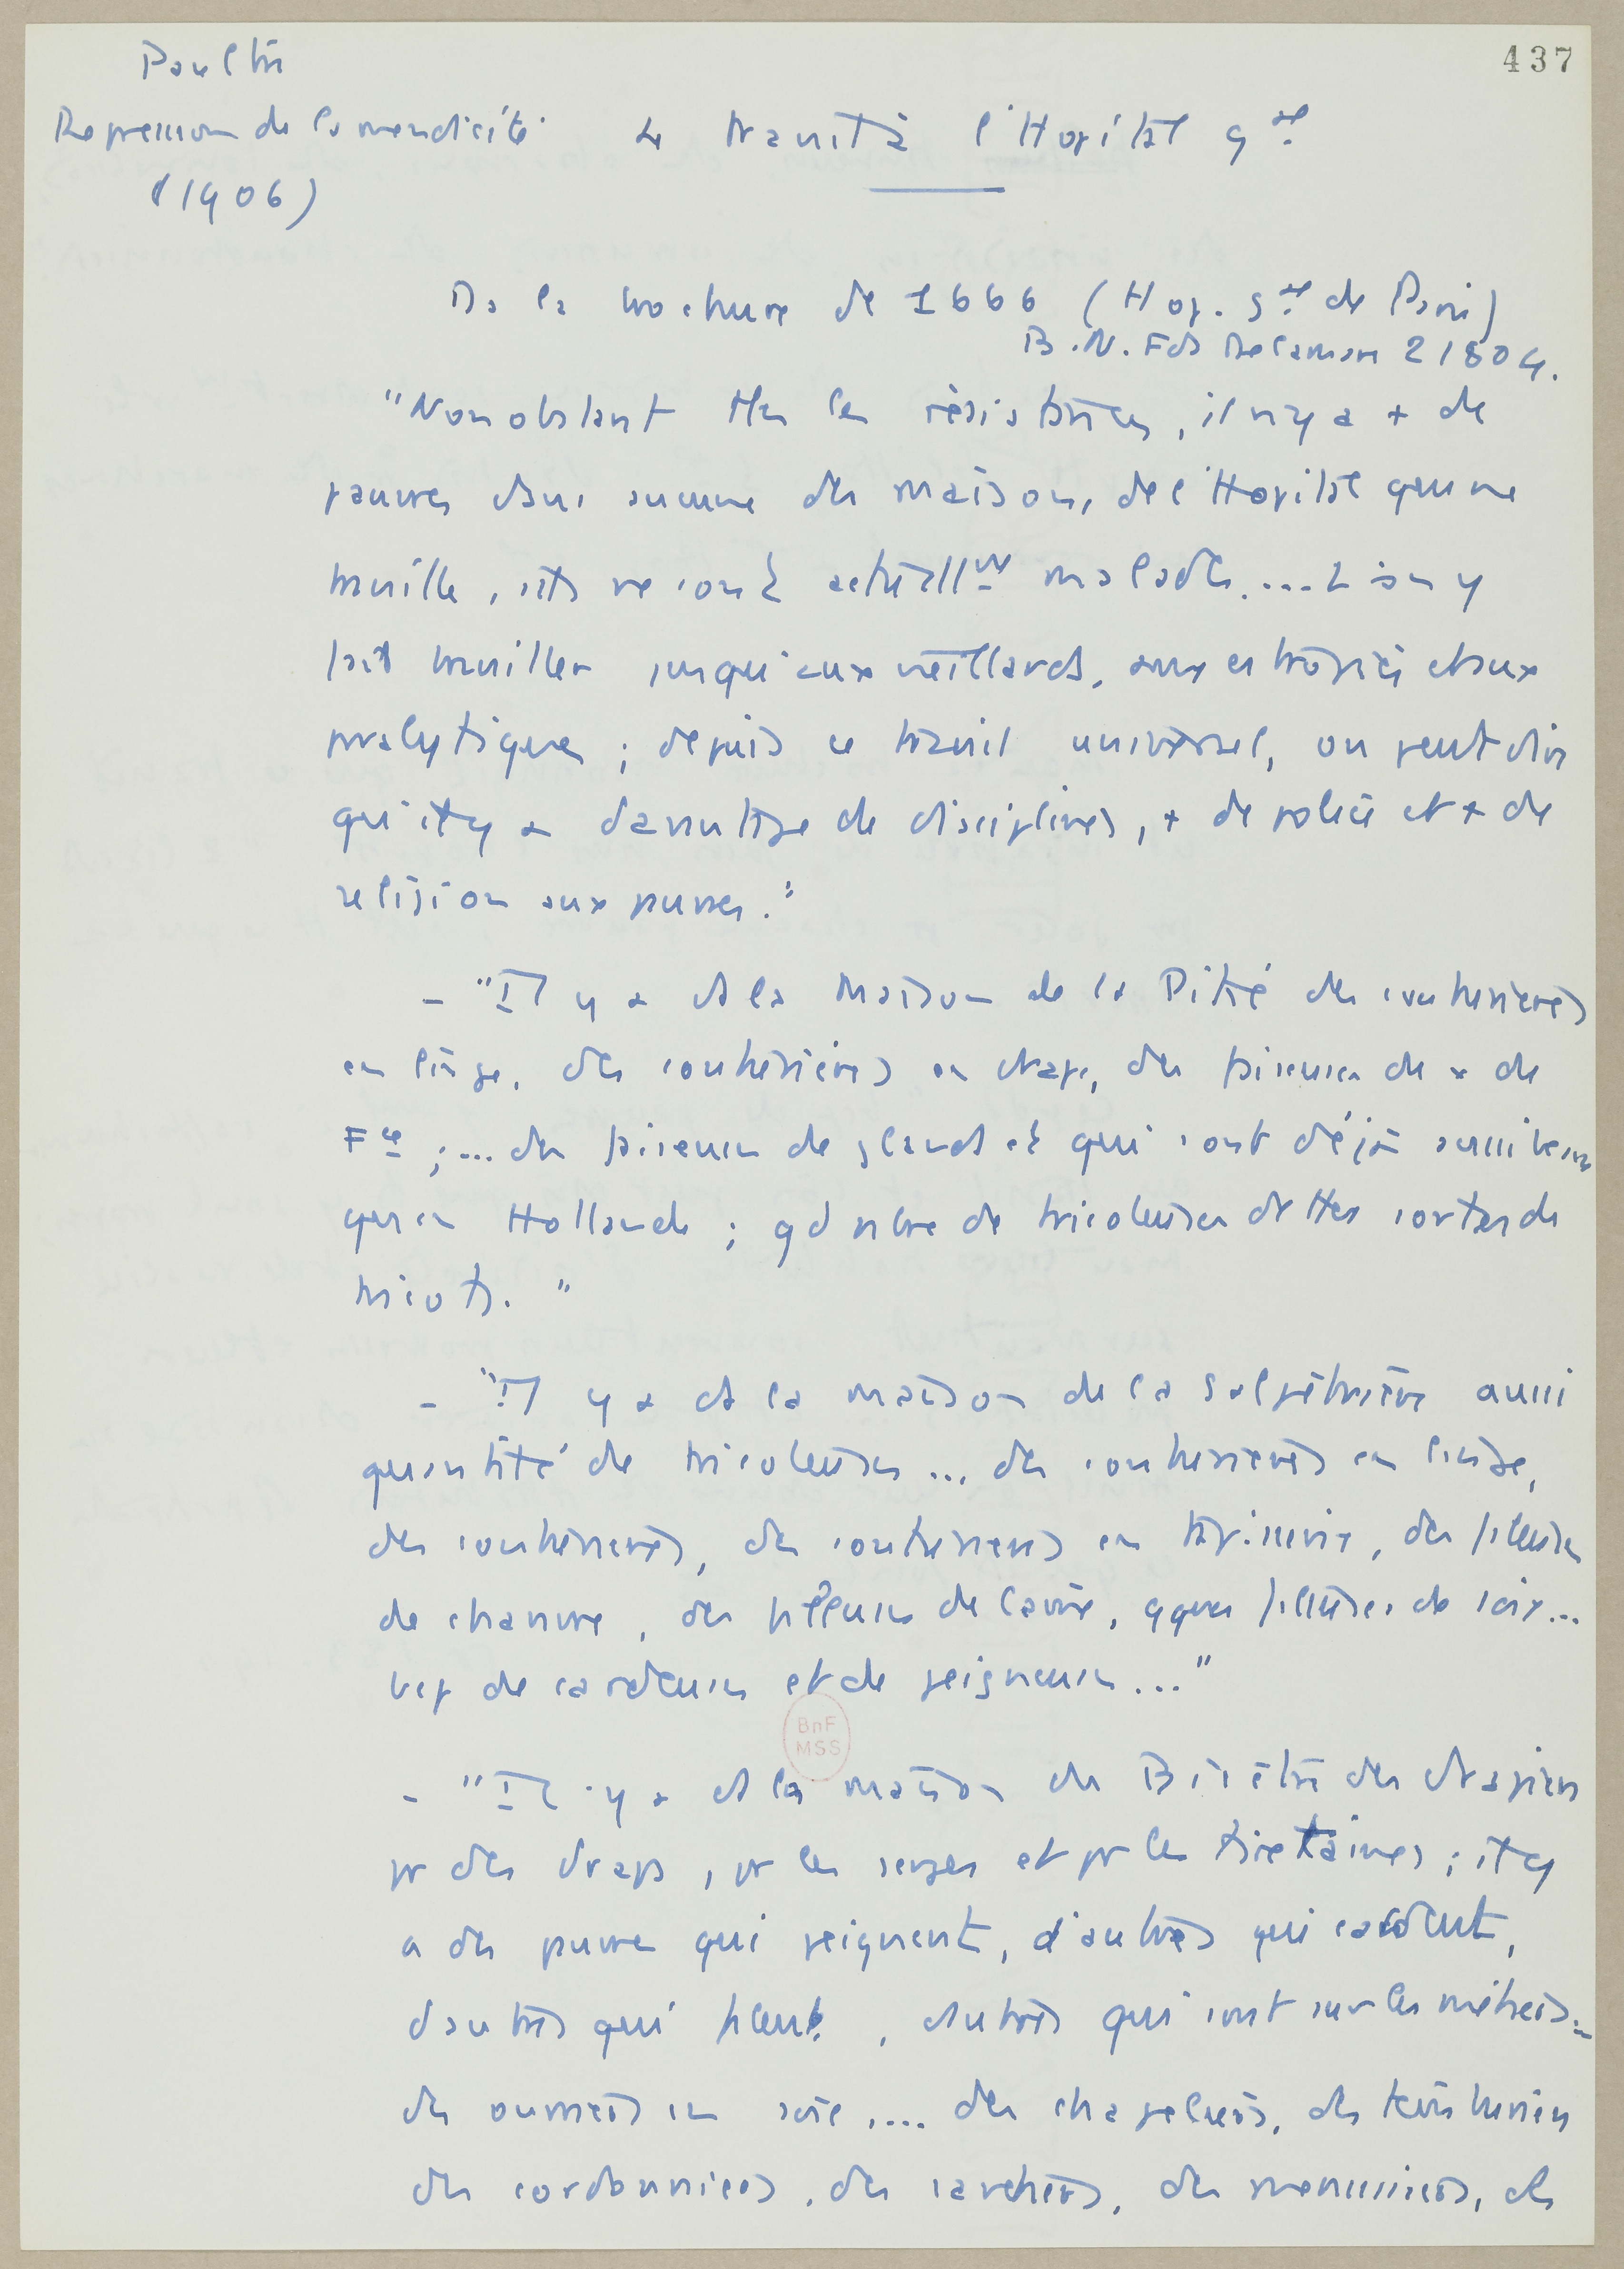 437
Paultre
Repression de la mendicité
(1906)
Le travail à l'Hopital gal
Ds la brochure de 1666 (Hop. gal de Paris)
B.N. Fds Delamare 21804.
"Nonobstant ttes les résistances, il n'y a + de
pauvres dans aucune des maisons de l'Hopital qui ne
travaille, s'ils ne sont actuellt malades.... et on y
fait travailler jusqu'aux vieillards, aux estropiés et aux
paralytiques ; depuis ce travail universel, on peut dire
qu'il y a davantage de disciplines, + de police et + de
religion aux pauvres."
- "Il y a ds la Maison de la Pitié des couturières
en linge, des couturières en drap, des faiseuses de de
Fce ;... des faiseuses de qui sont déjà
qu'en Hollande ; gd nbre de tricoteuses de ttes sortes de
tricots. "
- "Il y a ds la maison de la Salpétrière aussi
quantité de tricoteuses ... des couturières en linge,
des couturières, des couturières en tapisserie, des fileuses
de chanvre, des fileuses de laine, qques fileuses de soie...
bcp de cardeuses et de peigneuses..."
BnF
MSS
- "Il y a ds la maison de Bicêtre des drapiers
pr des draps, pr les serges et pr les tiretaines ; il y
a des pauvres qui peignent, d'autres qui cardent,
d'autres qui filent, d'autres qui sont sur les métiers...
des ouvriers en soie,.... des chapeliers, des teinturiers
des cordonniers, des des menuisiers, des